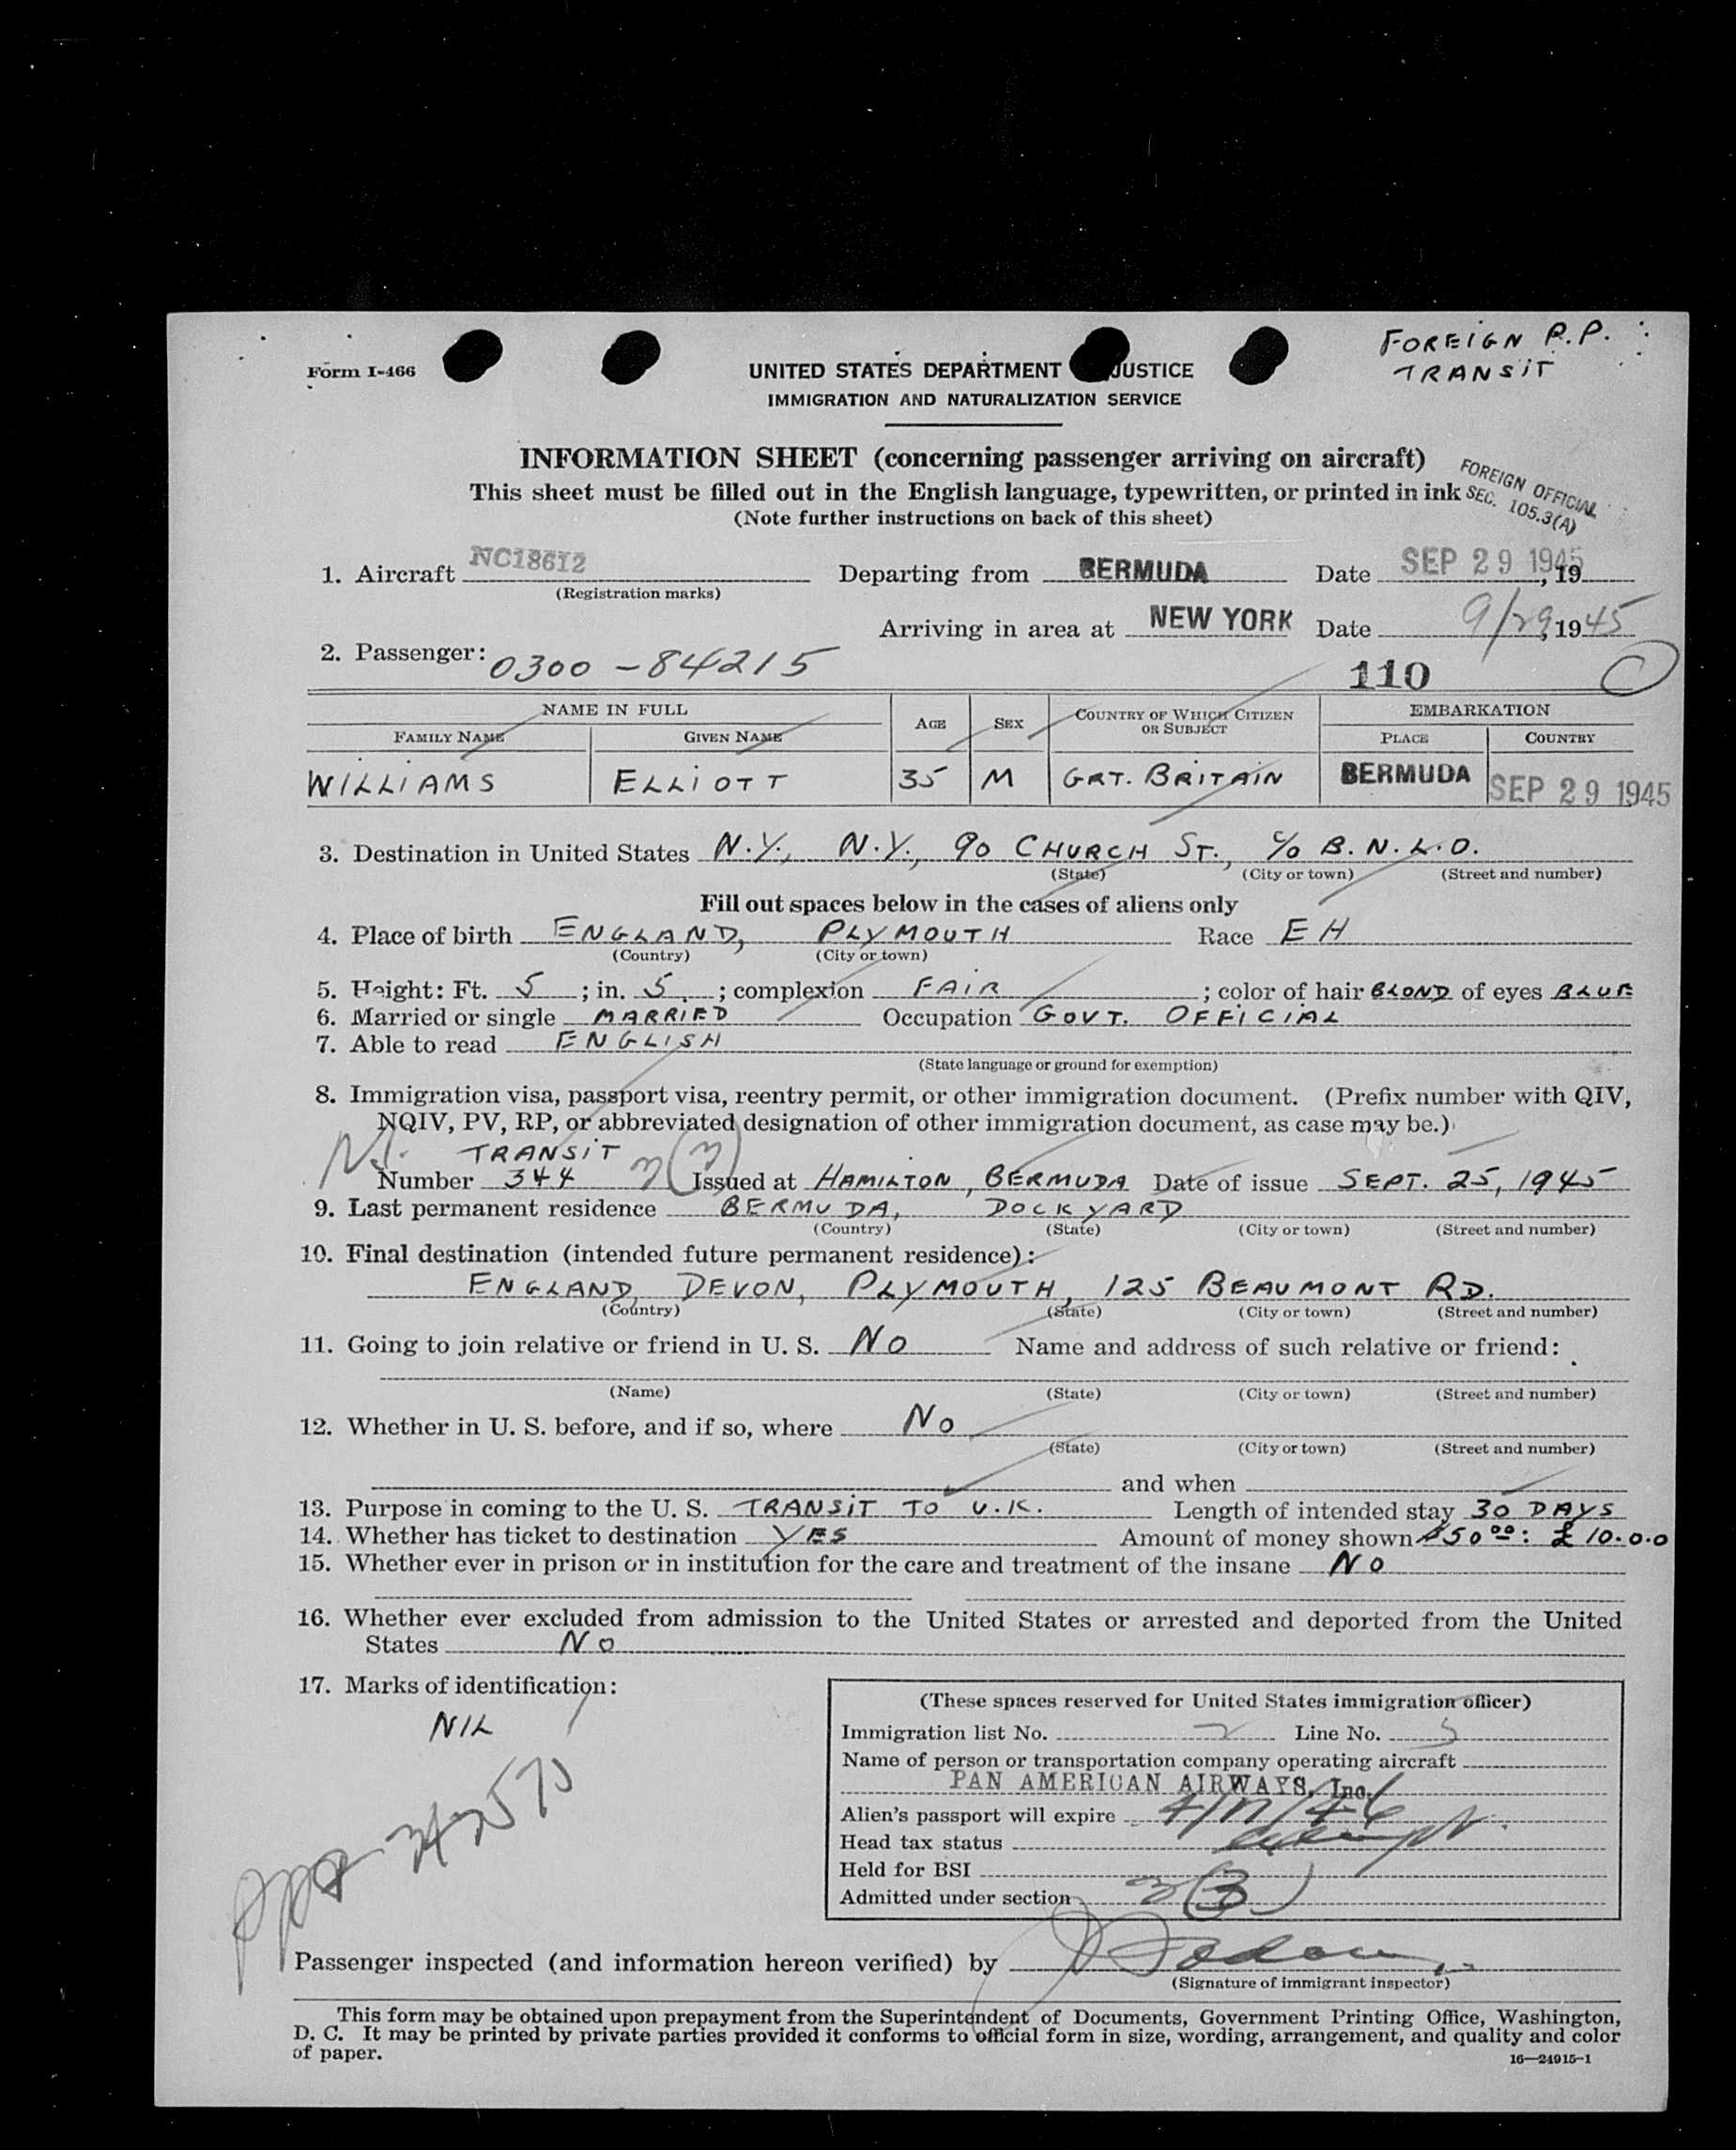 FOREIGN P.P.
TRANSIT
Form I-466
UNITED STATES DEPARTMENT JUSTICE
IMMIGRATION AND NATURALIZATION SERVICE
INFORMATION SHEET (concerning passenger arriving on aircraft)
FOREIGN OFFICIAL
SEC. 105.3(A)
This sheet must be filled out in the English language, typewritten, or printed in ink
(Note further instructions on back of this sheet)
1. Aircraft NC18612 Departing from BERMUDA Date SEP 29 1945, 19
(Registration marks)
Arriving in area at NEW YORK Date 9/29, 1945
2. Passenger: 0300-84215 110
NAME IN FULL AGE SEX COUNTRY OF WHICH CITIZEN OR SUBJECT EMBARKATION
FAMILY NAME GIVEN NAME PLACE COUNTRY
WILLIAMS ELLIOTT 35 M GRT. BRITAIN BERMUDA SEP 29 1945
3. Destination in United States N.Y., N.Y., 90 CHURCH ST., C/O B.N.L.O.
(State) (City or town) (Street and number)
Fill out spaces below in the cases of aliens only
4. Place of birth ENGLAND, PLYMOUTH Race EH
(Country) (City or town)
5. Height: Ft. 5; in. 5; complexion FAIR; color of hair BLOND of eyes BLUE
6. Married or single MARRIED Occupation GOVT. OFFICIAL
7. Able to read ENGLISH
(State language or ground for exemption)
8. Immigration visa, passport visa, reentry permit, or other immigration document. (Prefix number with QIV,
NQIV, PV, RP, or abbreviated designation of other immigration document, as case may be.)
TRANSIT
Number 344 3(3) Issued at HAMILTON, BERMUDA Date of issue SEPT. 25, 1945
9. Last permanent residence BERMUDA, DOCKYARD
(Country) (State) (City or town) (Street and number)
10. Final destination (intended future permanent residence):
ENGLAND, DEVON, PLYMOUTH, 125 BEAUMONT RD.
(Country) (State) (City or town) (Street and number)
11. Going to join relative or friend in U. S. NO Name and address of such relative or friend:
(Name) (State) (City or town) (Street and number)
12. Whether in U. S. before, and if so, where NO
(State) (City or town) (Street and number)
and when
13. Purpose in coming to the U. S. TRANSIT TO U.K. Length of intended stay 30 DAYS
14. Whether has ticket to destination YES Amount of money shown $50 00: £10.0.0
15. Whether ever in prison or in institution for the care and treatment of the insane NO
16. Whether ever excluded from admission to the United States or arrested and deported from the United
States NO
17. Marks of identification:
NIL
(These spaces reserved for United States immigration officer)
Immigration list No. 2 Line No. 5
Name of person or transportation company operating aircraft
PAN AMERICAN AIRWAYS, Inc.
Alien's passport will expire 4/17/46
Head tax status exempt
Held for BSI
Admitted under section 3(3)
Passenger inspected (and information hereon verified) by
(Signature of immigrant inspector)
This form may be obtained upon prepayment from the Superintendent of Documents, Government Printing Office, Washington,
D. C. It may be printed by private parties provided it conforms to official form in size, wording, arrangement, and quality and color
of paper.
16—24915-1